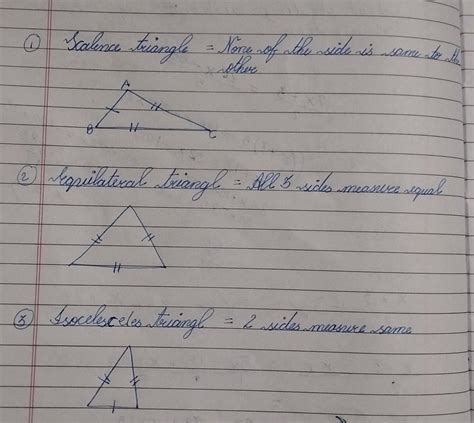 ① Scalence triangle = None of the side is same to the
other
A
B
C
② equilateral triangl = All 3 sides measure equal
③ Isocelesceles triangl = 2 sides measure same